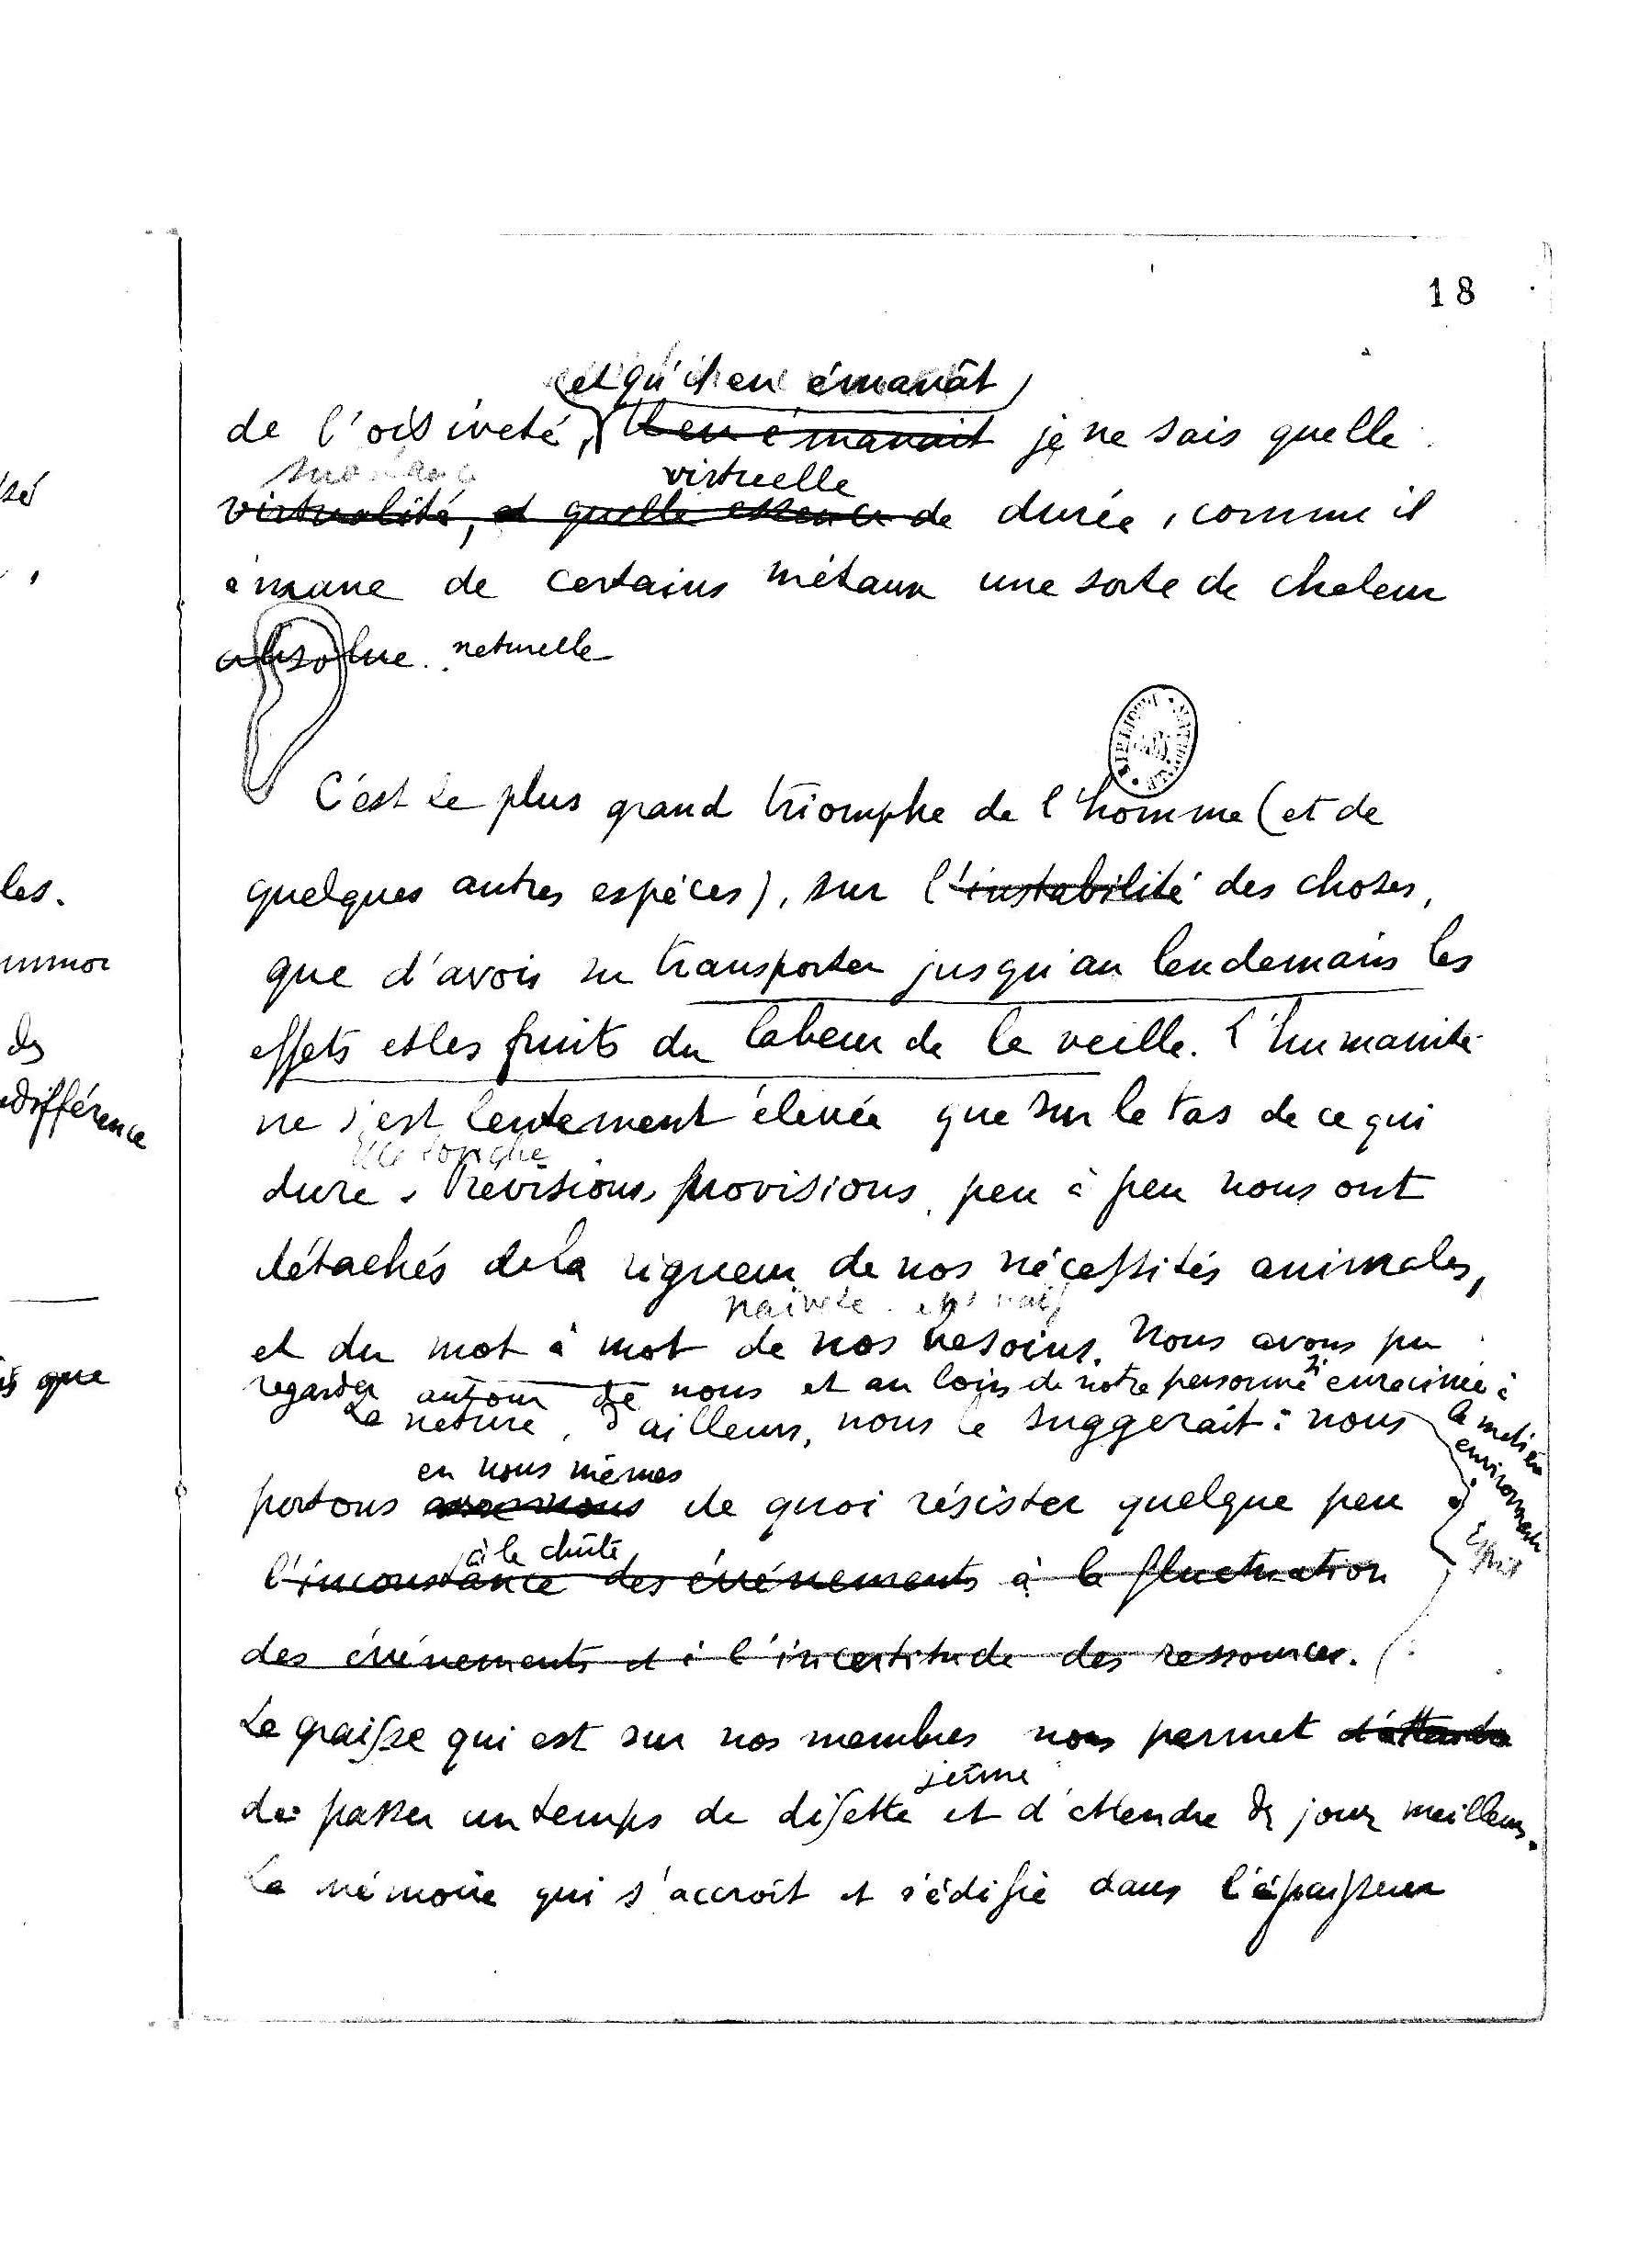 18
et qu'il en émanât
de l'oisiveté, il en émanait je ne sais quelle
virtuelle
virtualité, et quelle essence de durée, comme il
émane de certains métaux une sorte de chaleur
absolue. naturelle
C'est le plus grand triomphe de l'homme (et de
quelques autres espèces), sur l'instabilité des choses,
que d'avoir su transporter jusqu'au lendemain les
effets et les fruits du labeur de la veille. L'humanité
ne s'est lentement élevée que sur le tas de ce qui
dure. Prévisions, provisions, peu à peu nous ont
détachés de la rigueur de nos nécessités animales,
naïveté
et du mot à mot de nos besoins. Nous avons pu
regarder autour de nous et au loin de notre personne si enracinée à
La nature, d'ailleurs, nous le suggerait : nous
le milieu
environnant
Esprit
en nous mêmes
portons avec nous de quoi résister quelque peu
à la chûte
l'inconstance des événements à la fluctuation
des événements et à l'incertitude des ressources.
La graisse qui est sur nos membres nous permet d'attendre
jeûne
de passer un temps de disette et d'attendre des jours meilleurs.
La mémoire qui s'accroît et s'édifie dans l'épaisseur
les.
des
indifférence
que